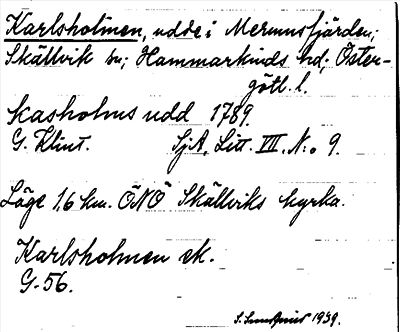 Karlsholmen, udde i Merumsfjärden;
Skällvik sn; Hammarkinds hd; Öster-
götl. l.
Kasholms udd 1789.
G. Klint. SjA, Litt. VII. N:o 9.
Läge 1,6 km. ÖNÖ Skällviks kyrka.
Karlsholmen ek.
G-56.
1939.